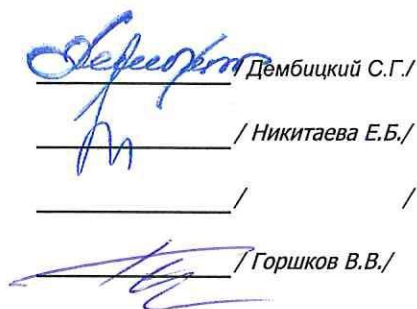 / Дембицкий С.Г./
/ Никитаева Е.Б./
/ /
/ Горшков В.В./